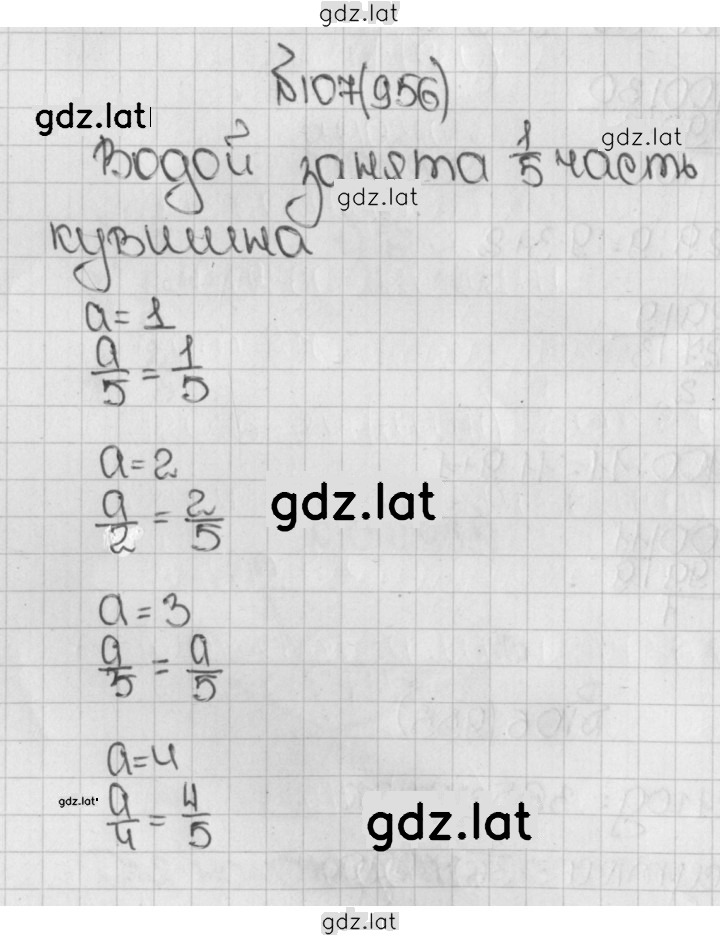 gdz.lat
№107(956)
gdz.lat
gdz.lat
Водой занята 1/5 часть
gdz.lat
кувшина
a = 1
a/5 = 1/5
a = 2
gdz.lat
a/2 = 2/5
a = 3
a/5 = a/5
a = 4
gdz.lat
a/4 = 4/5
gdz.lat
gdz.lat